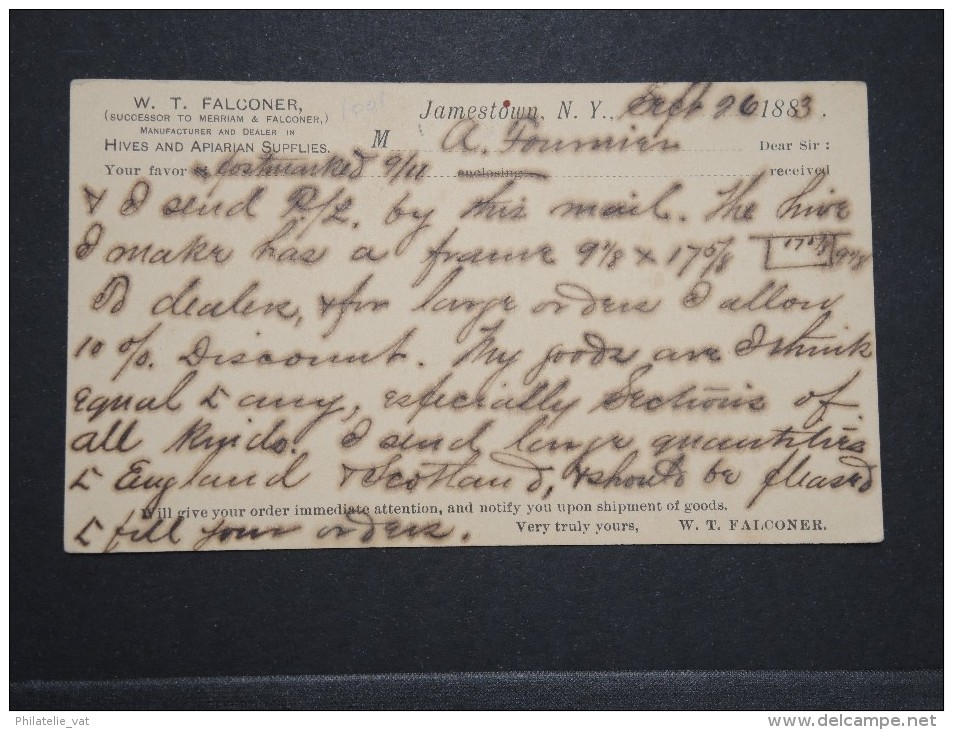 W. T. FALCONER,
(SUCCESSOR TO MERRIAM & FALCONER,)
MANUFACTURER AND DEALER IN
HIVES AND APIARIAN SUPPLIES.
Jamestown, N. Y., Sept 26 1883.
M A. Fournier Dear Sir:
Your favor postmarked 9/11 enclosing received
& I send P/L by this mail. The hive
I make has a frame 9 1/8 x 17 5/8 17 5/8 9 1/8
To dealers, & for large orders I allow
10 %. Discount. My goods are I think
equal to any, especially Sections of
all kinds. I send large quantities
to England & Scotland, & should be pleased
Will give your order immediate attention, and notify you upon shipment of goods.
to fill your orders.
Very truly yours, W. T. FALCONER.
Philatelie_vat
http://www.delcampe.net